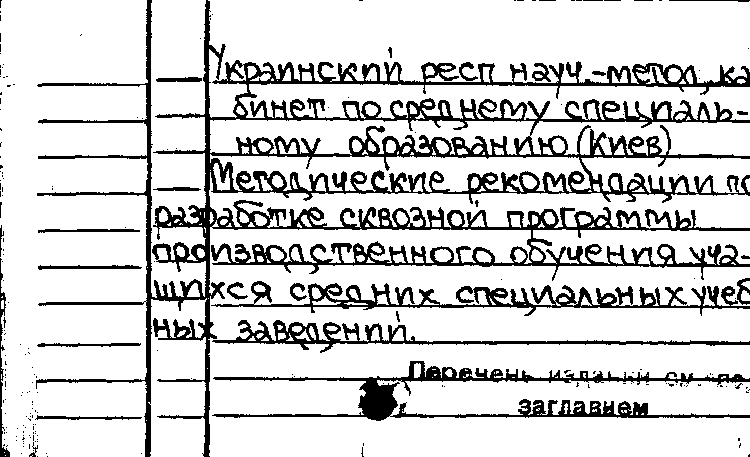 Украинский респ науч.-метод, ка
бинет по среднему специаль-
ному образованию (Киев)
Методические рекомендации по
разработке сквозной программы
производственного обучения уча-
щихся средних специальных учеб
ных заведений.
Перечень издания см. по
заглавием